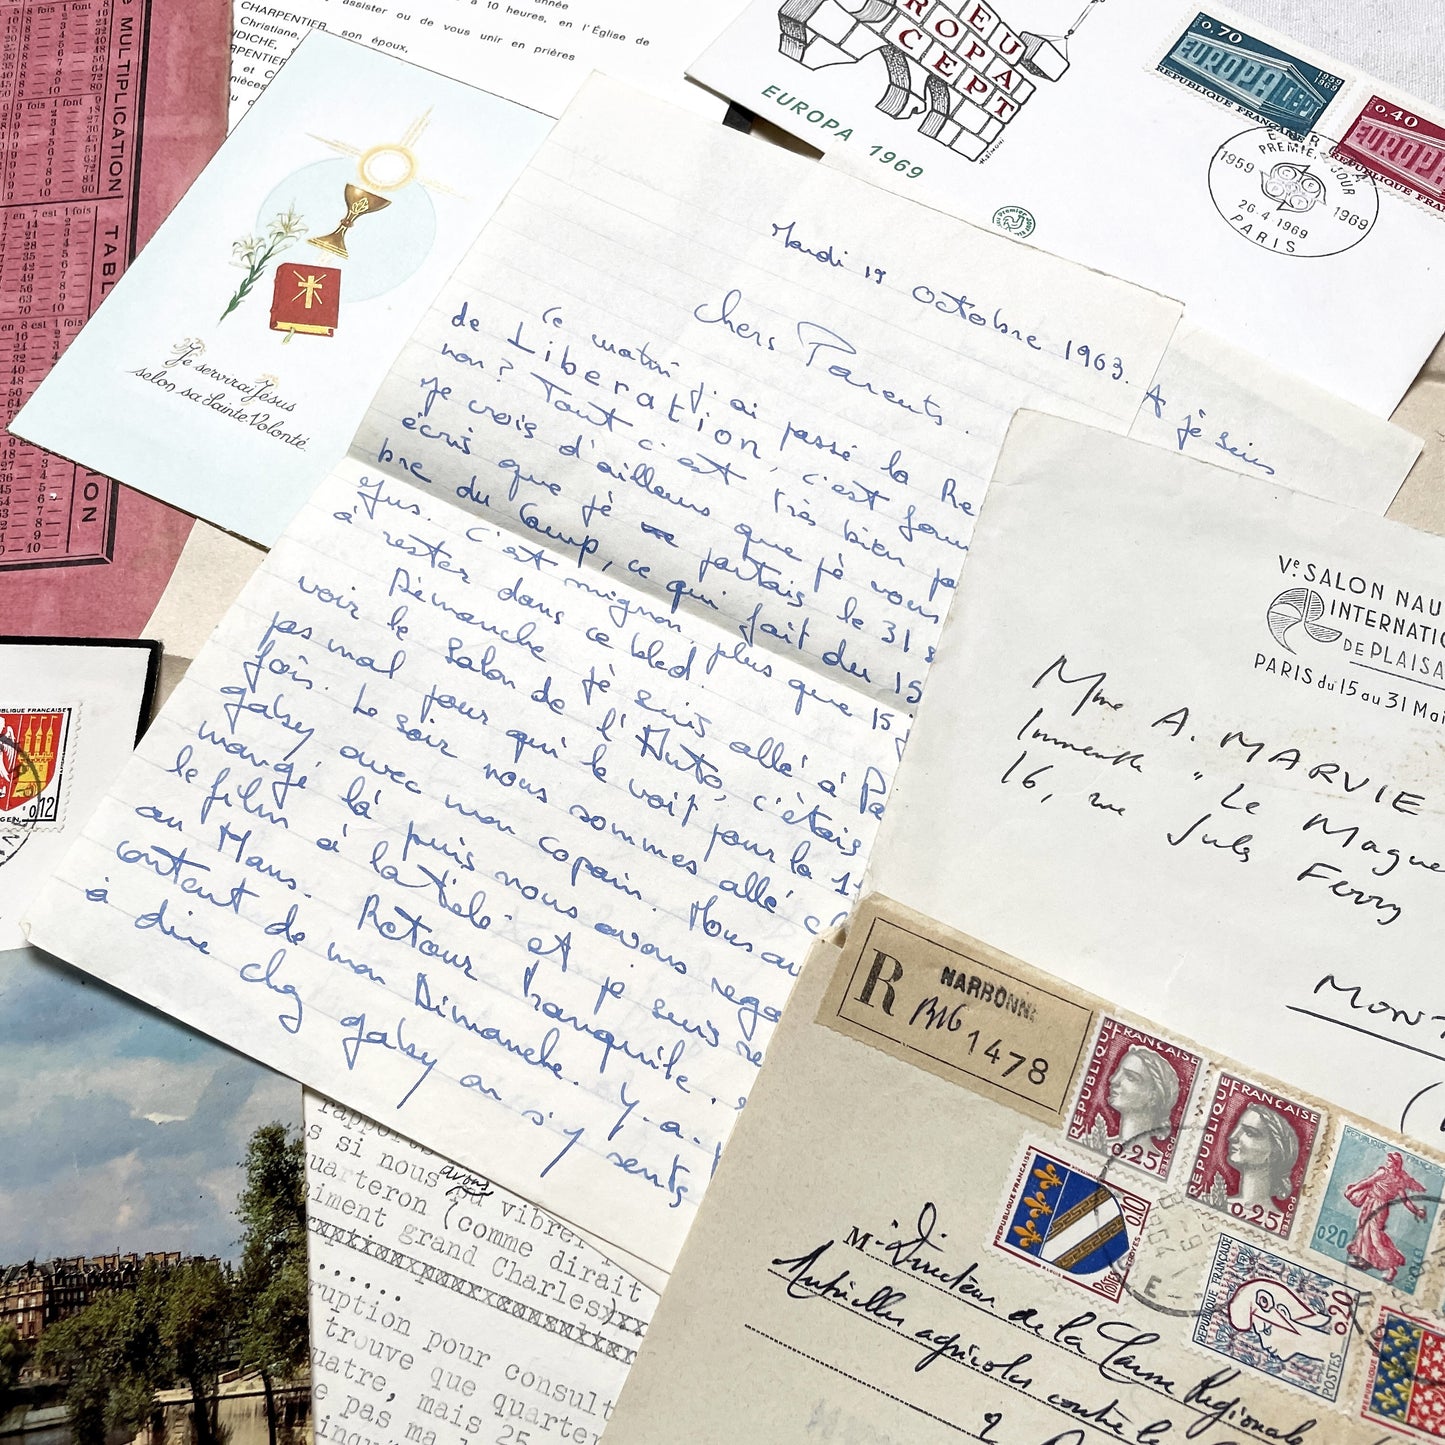 année
à 10 heures, en l'Église de
assister ou de vous unir en prières
CHARPENTIER
Christiane,
son époux,
MULTIPLICATION
TABL
fois 1 font
7 est 1 fois
8 est 1 fois
Je servirai Jésus
selon sa Sainte Volonté.
EU
ROPA
CEPT
EUROPA 1969
H. SIMONI
0,70
EUROPA CEPT
1959
1969
REPUBLIQUE FRANÇAISE
0,40
EUROPA
REPUBLIQUE FRANÇAISE
PREMIER JOUR
1959
1969
26-4-1969
PARIS
Mardi 15 Octobre 1963.
Chers Parents.
Ce matin j'ai passé la Re
de Liberation, c'est
non? Tout c'est très bien
Je vois d'ailleurs que je vous
écris que je partais le 31
bre du Camp, ce qui fait du 15
Jus. C'est mignon plus que 15
à rester dans ce bled.
Dimanche je suis allé à Pa
voir le Salon de l'Auto, c'étais
pas mal pour qui le voit pour la 1
fois. Le soir nous sommes allé c
gaby avec mon copain. Nous av
mangé là puis nous avons rega
le film à la télé et je suis re
au Mans. Retour tranquille.
contant de mon Dimanche. Y.a.
à dire chez gaby on s'y sents
A
je suis
Ve SALON NAU
INTERNATIO
DE PLAISA
PARIS du 15 au 31 Mai
Mme A. MARVIE
Immeuble " Le Mague
16, rue Jules Ferry
MONT
R
NARBONNE
1478
REPUBLIQUE FRANÇAISE
0,12
REPUBLIQUE FRANÇAISE
0,25
POSTES
REPUBLIQUE FRANÇAISE
0,25
POSTES
0,20
REPUBLIQUE FRANÇAISE
0,10
POSTES
REPUBLIQUE FRANÇAISE
0,20
POSTES
M. Directeur de la Caisse Régionale
agricoles contre le
rappor
s si nous avons pu vibre
uarteron (comme dirait
iment grand Charles)
.....
ruption pour consult
trouve que quarter
uatre, mais 25
e pas ma